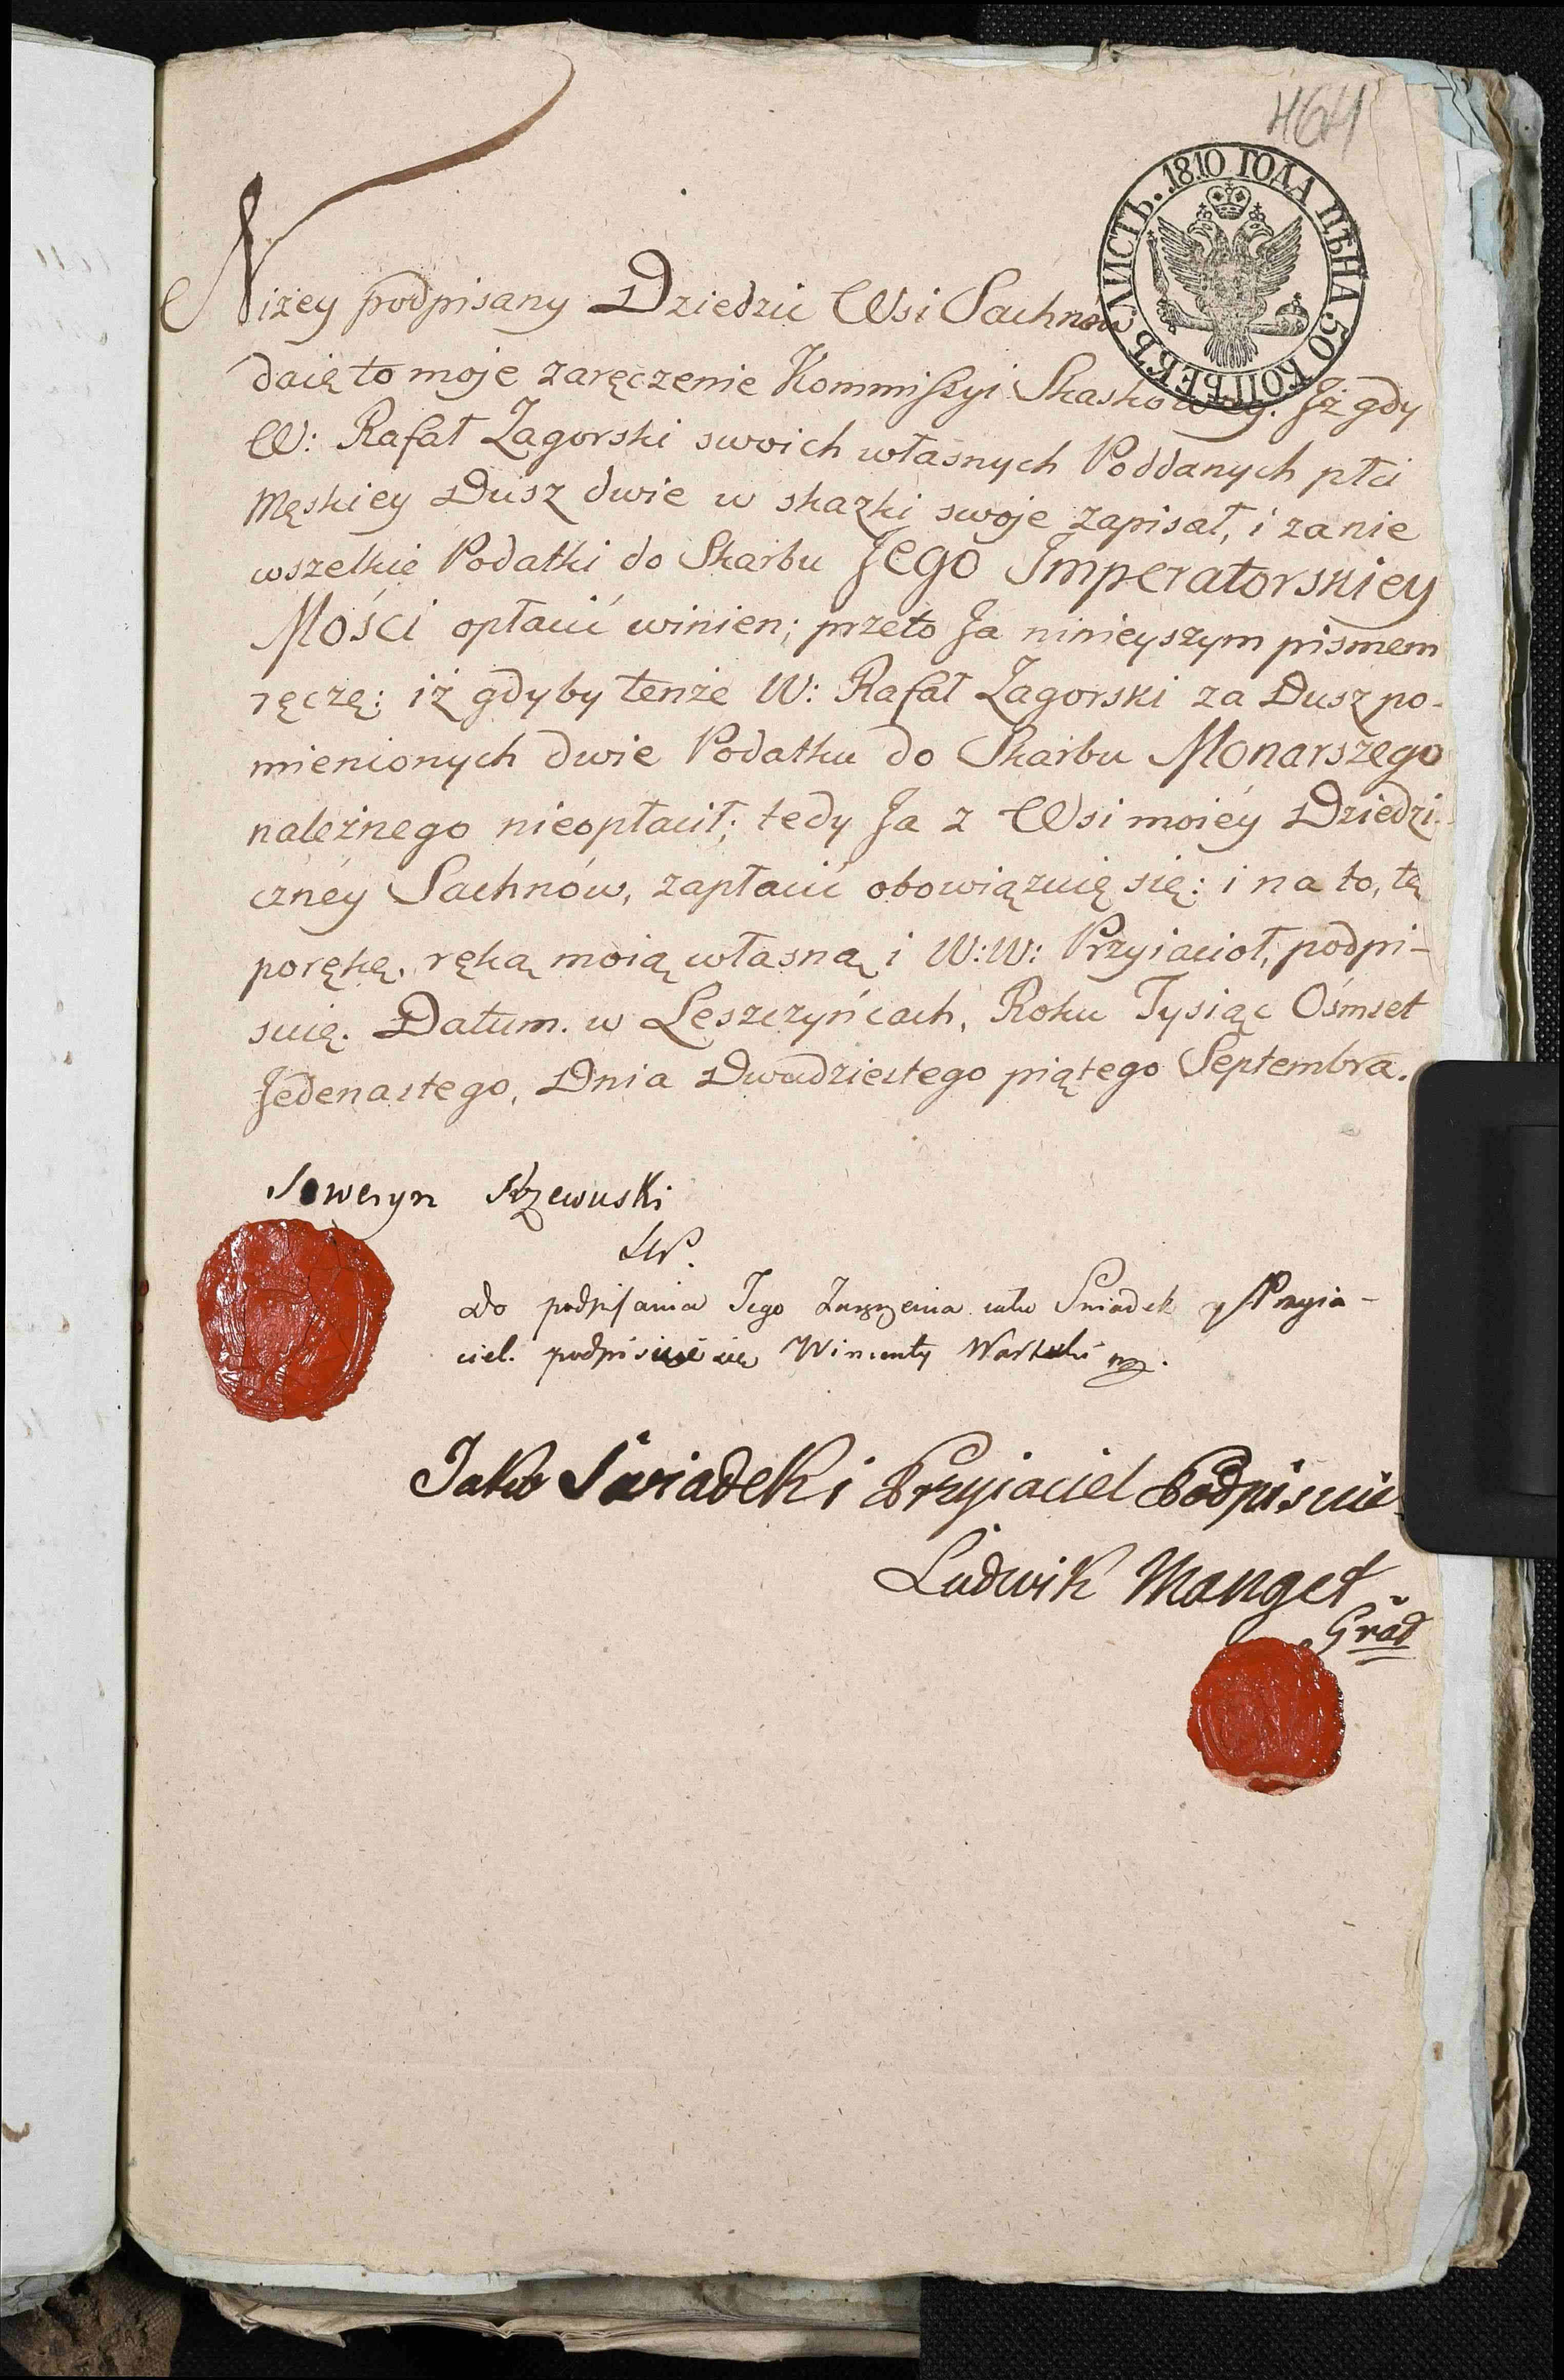 464
ЛИСТЪ. 1810 ГОДА ЦѢНА 50 КОПѢЕКЪ.
Niżey podpisany Dziedzic Wsi Sachnów
daię to moje zaręczenie Kommiſsyi Skaskowey. Jż gdy
W: Rafał Zagorski swoich własnych Poddanych płci
Męskiey Dusz dwie w skazki swoje zapisał, i za nie
wszelkie Podatki do Skarbu Jego Jmperatorskiey
Mości opłacić winien; przeto Ja ninieyszym pismem
ręczę: iż gdyby tenże W: Rafał Zagorski za Dusz po-
mienionych dwie Podatku do Skarbu Monarszego
należnego nieopłacił; tedy Ja z Wsi moiéy Dziedzi-
cznéy Sachnów, zapłacić obowiązuię się: i na to, tę
porękę, ręką moią własną i W:W: Przyiacioł, podpi-
suię. Datum. w Leszczyńcach, Roku Tysiąc Ośmset
Jedenastego, Dnia Dwudziestego piątego Septembra.
Seweryn Rzewuski
do podpiſania Tego Zaręczenia iako Swiadek y Przyia-
ciel. podpisuie się Wincenty mp.
Jako Swiadek i Przyiaciel Podpisuie
Ludwik Manget